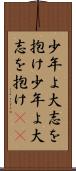 少年よ大志を
抱け少年よ大
志を抱け（（